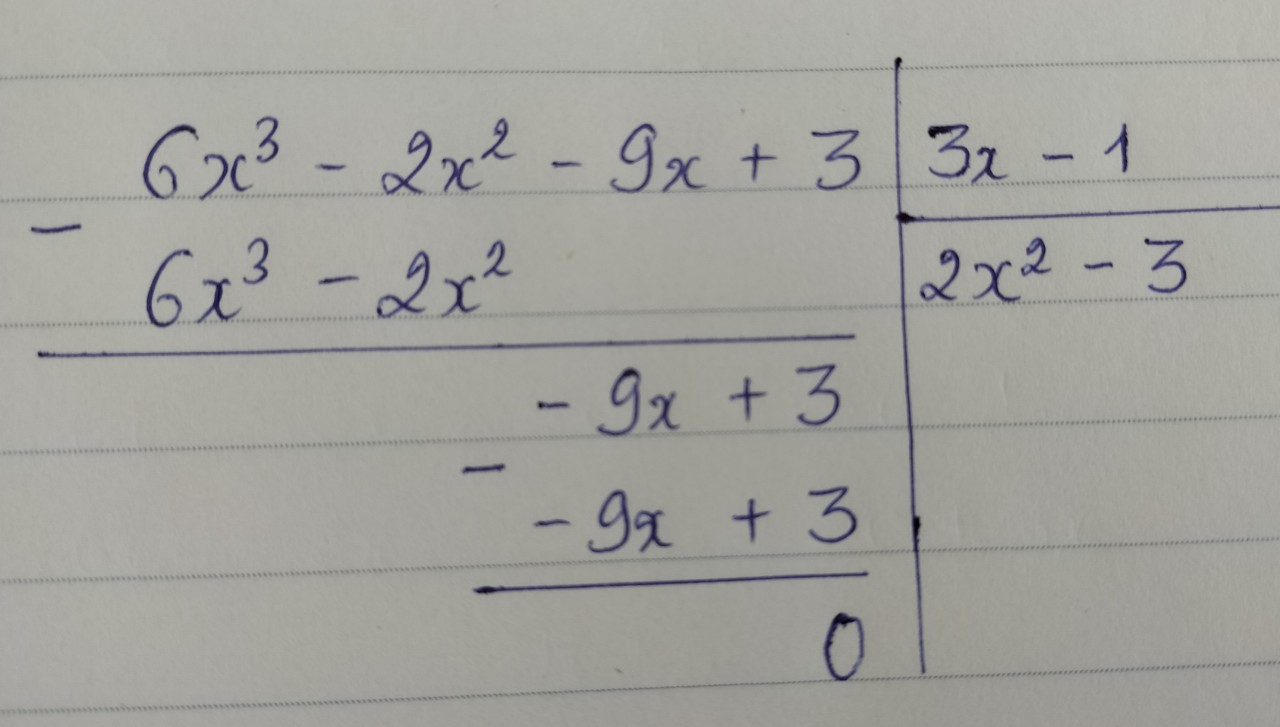 6x³ - 2x² - 9x + 3 | 3x - 1
-
6x³ - 2x² | 2x² - 3
- 9x + 3
-
- 9x + 3
0